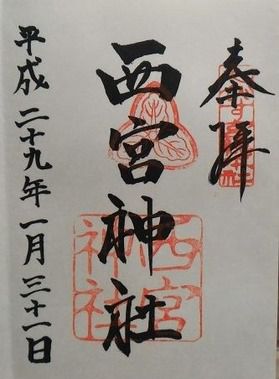 奉拝
西宮神社
平成二十九年一月三十一日
西宮
神社